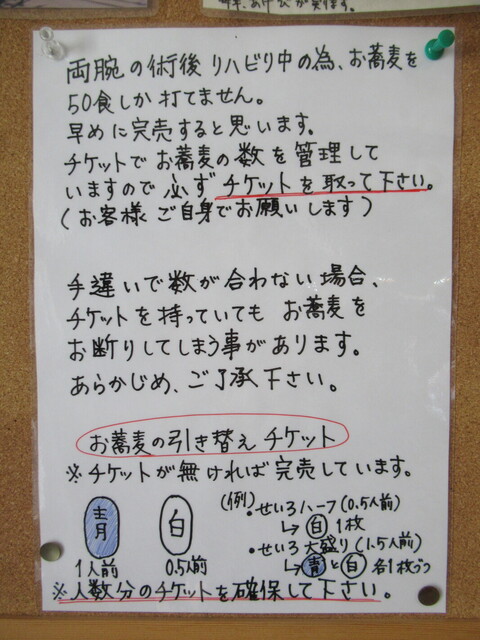 両腕の術後リハビリ中の為、お蕎麦を
50食しか打てません。
早めに完売すると思います。
チケットでお蕎麦の数を管理して
いますので必ずチケットを取って下さい。
(お客様ご自身でお願いします)
手違いで数が合わない場合、
チケットを持っていてもお蕎麦を
お断りしてしまう事があります。
あらかじめ、ご了承下さい。
お蕎麦の引き替えチケット
※チケットが無ければ完売しています。
青
1人前
白
0.5人前
(例)・せいろハーフ(0.5人前)
↳白 1枚
・せいろ大盛り(1.5人前)
↳青と白 各1枚づつ
※人数分のチケットを確保して下さい。